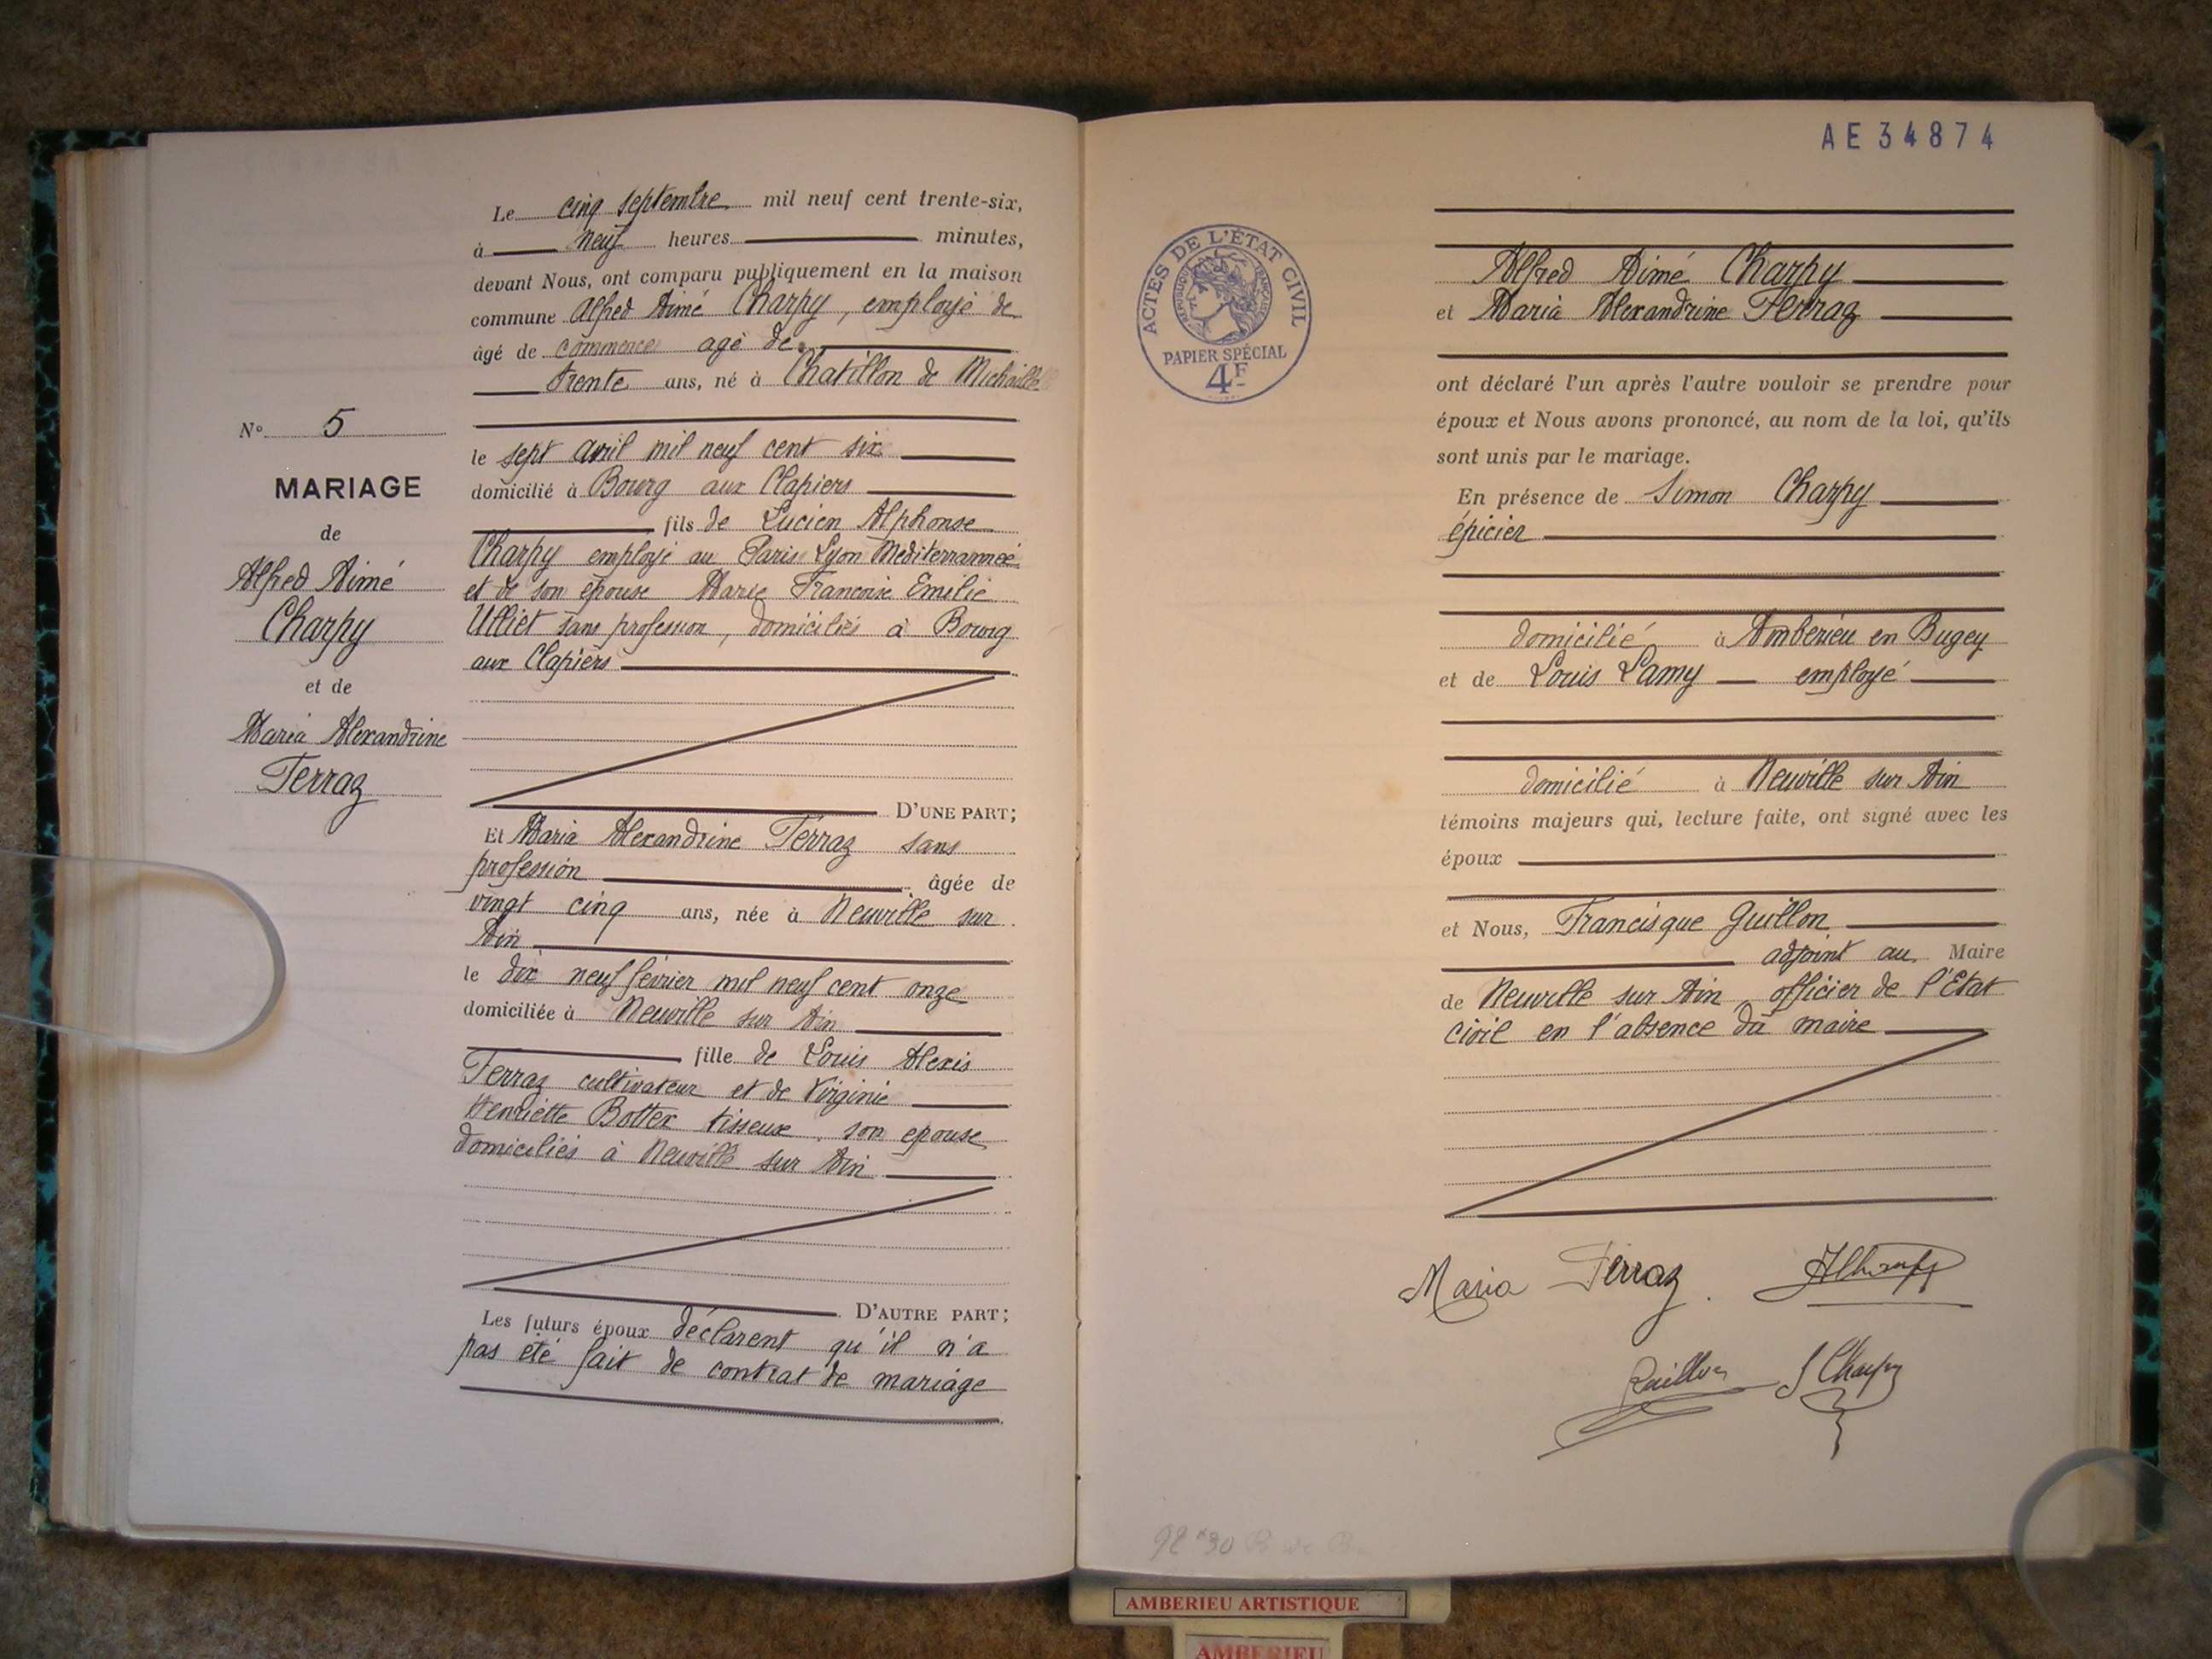 Nº 5
MARIAGE
de
Alfred Aimé
Charpy
et de
Maria Alexandrine
Terraz
Le cinq septembre mil neuf cent trente-six,
à neuf heures minutes,
devant Nous, ont comparu publiquement en la maison
commune Alfred Aimé Charpy, employé de
âgé de commerce agé de
trente ans, né à Chatillon de Michaille
le sept avril mil neuf cent six
domicilié à Bourg aux Clapiers
fils de Lucien Alphonse
Charpy employé au Paris Lyon Mediterrannée
et de son épouse Marie Francoise Emilie
Ulliet sans profession, domiciliés à Bourg
aux Clapiers
D'UNE PART;
Et Maria Alexandrine Terraz sans
profession âgée de
vingt cinq ans, née à Neuville sur
Ain
le dix neuf février mil neuf cent onze
domiciliée à Neuville sur Ain
fille de Louis Alexis
Terraz cultivateur et de Virginie
Henriette Bottex tisseuse son epouse
domiciliés à Neuville sur Ain
D'AUTRE PART;
Les futurs époux déclarent qu'il n'a
pas été fait de contrat de mariage
AE34874
ACTES DE L'ÉTAT CIVIL
RÉPUBLIQUE FRANÇAISE
PAPIER SPÉCIAL
4F
Alfred Aimé Charpy
et Maria Alexandrine Terraz
ont déclaré l'un après l'autre vouloir se prendre pour
époux et Nous avons prononcé, au nom de la loi, qu'ils
sont unis par le mariage.
En présence de Simon Charpy
épicier
domicilié à Ambérieu en Bugey
et de Louis Lamy employé
domicilié à Neuville sur Ain
témoins majeurs qui, lecture faite, ont signé avec les
époux
et Nous, Francisque Guillon
adjoint au Maire
de Neuville sur Ain officier de l'Etat
civil en l'absence du maire
Maria Terraz.
Guillon S Charpy
AMBERIEU ARTISTIQUE
AMBERIEU